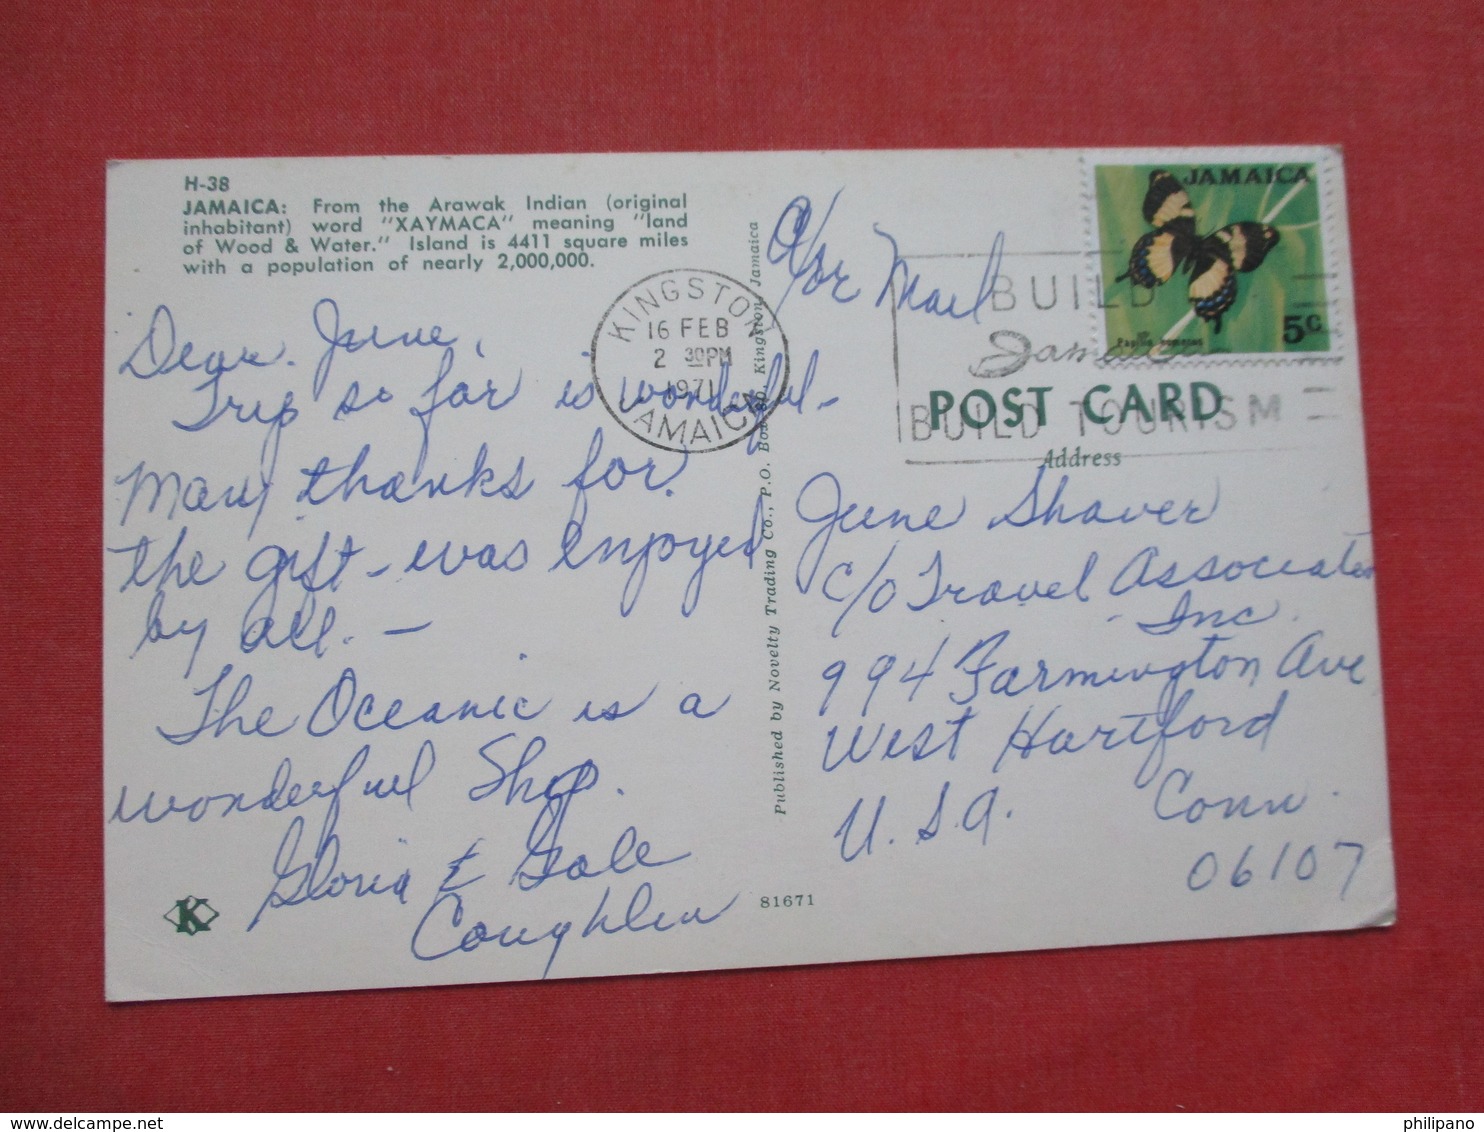 H-38
JAMAICA: From the Arawak Indian (original
inhabitant) word "XAYMACA" meaning "land
of Wood & Water." Island is 4411 square miles
with a population of nearly 2,000,000.
Dear June,
Trip so far is wonderful -
Many thanks for
the gift - was enjoyed
by all. -
The Oceanic is a
wonderful Ship.
Gloria & Gale
Coughlin
K
81671
Published by Novelty Trading Co., P.O. Box 80, Kingston, Jamaica
KINGSTON
16 FEB
2 30PM
1971
JAMAICA
Air Mail
BUILD
Jamaica
BUILD TOURISM
JAMAICA
5c.
POST CARD
Address
June Shaver
c/o Travel Associates
Inc.
994 Farmington Ave
West Hartford
Conn.
U.S.A.
06107
delcampe.net
philipano